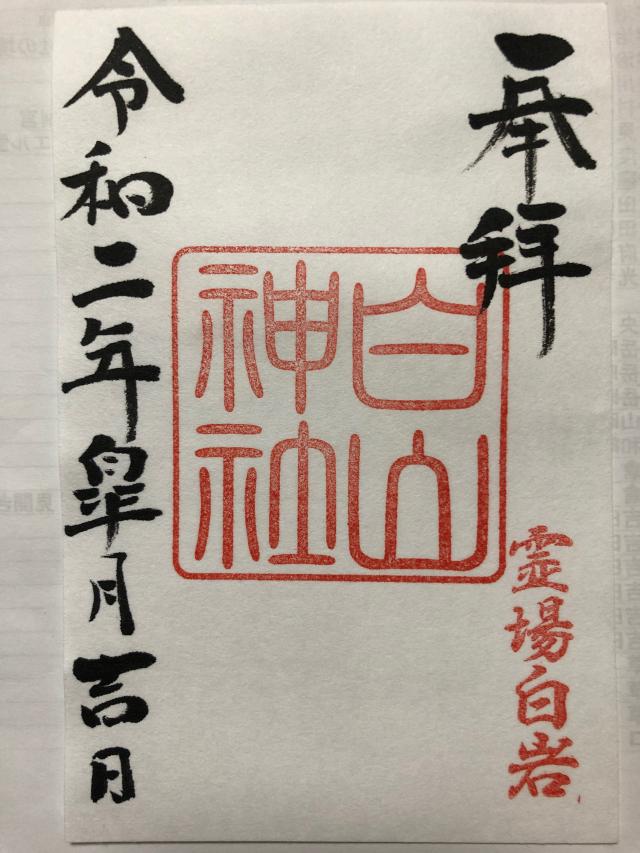 奉拜
霊場白岩
白山
神社
令和二年皐月吉日